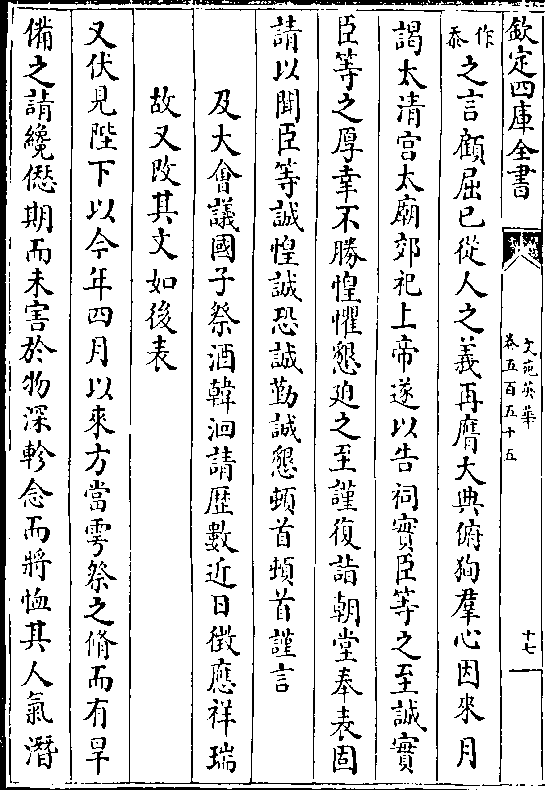 欽定四庫全書
文苑英華
卷五百五十五
十七
作
忝之言顧屈已從人之義再膺大典俯狥羣心因來月
謁太清宫太廟郊祀上帝遂以告祠實臣等之至誠實
臣等之厚幸不勝惶懼懇迫之至謹復詣朝堂奉表固
請以聞臣等誠惶誠恐誠勤誠懇頓首頓首謹言
及大會議國子祭酒韓洄請歴數近日徵應祥瑞
故又改其文如後表
又伏見陛下以今年四月以來方當雩祭之脩而有旱
備之請纔僽期而未害於物深軫念而將恤其人氣潛